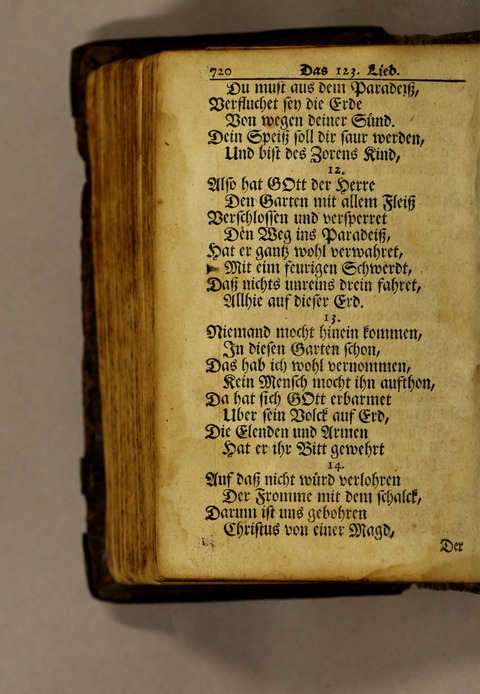 720 Das 123. Lied.
Du must aus dem Paradeiß,
Verfluchet sey die Erde
Von wegen deiner Sünd.
Dein Speiß soll dir saur werden,
Und bist des Zorens Kind,
12.
Also hat GOtt der Herre
Den Garten mit allem Fleiß
Verschlossen und versperret
Den Weg ins Paradeiß,
Hat er gantz wohl verwahret,
Mit eim feurigen Schwerdt,
Daß nichts unreins drein fahret,
Allhie auf dieser Erd.
13.
Niemand mocht hinein kommen,
In diesen Garten schon,
Das hab ich wohl vernommen,
Kein Mensch mocht ihn aufthon,
Da hat sich GOtt erbarmet
Uber sein Volck auf Erd,
Die Elenden und Armen
Hat er ihr Bitt gewehrt
14.
Auf daß nicht würd verlohren
Der Fromme mit dem schalck,
Darum ist uns gebohren
Christus von einer Magd,
Der